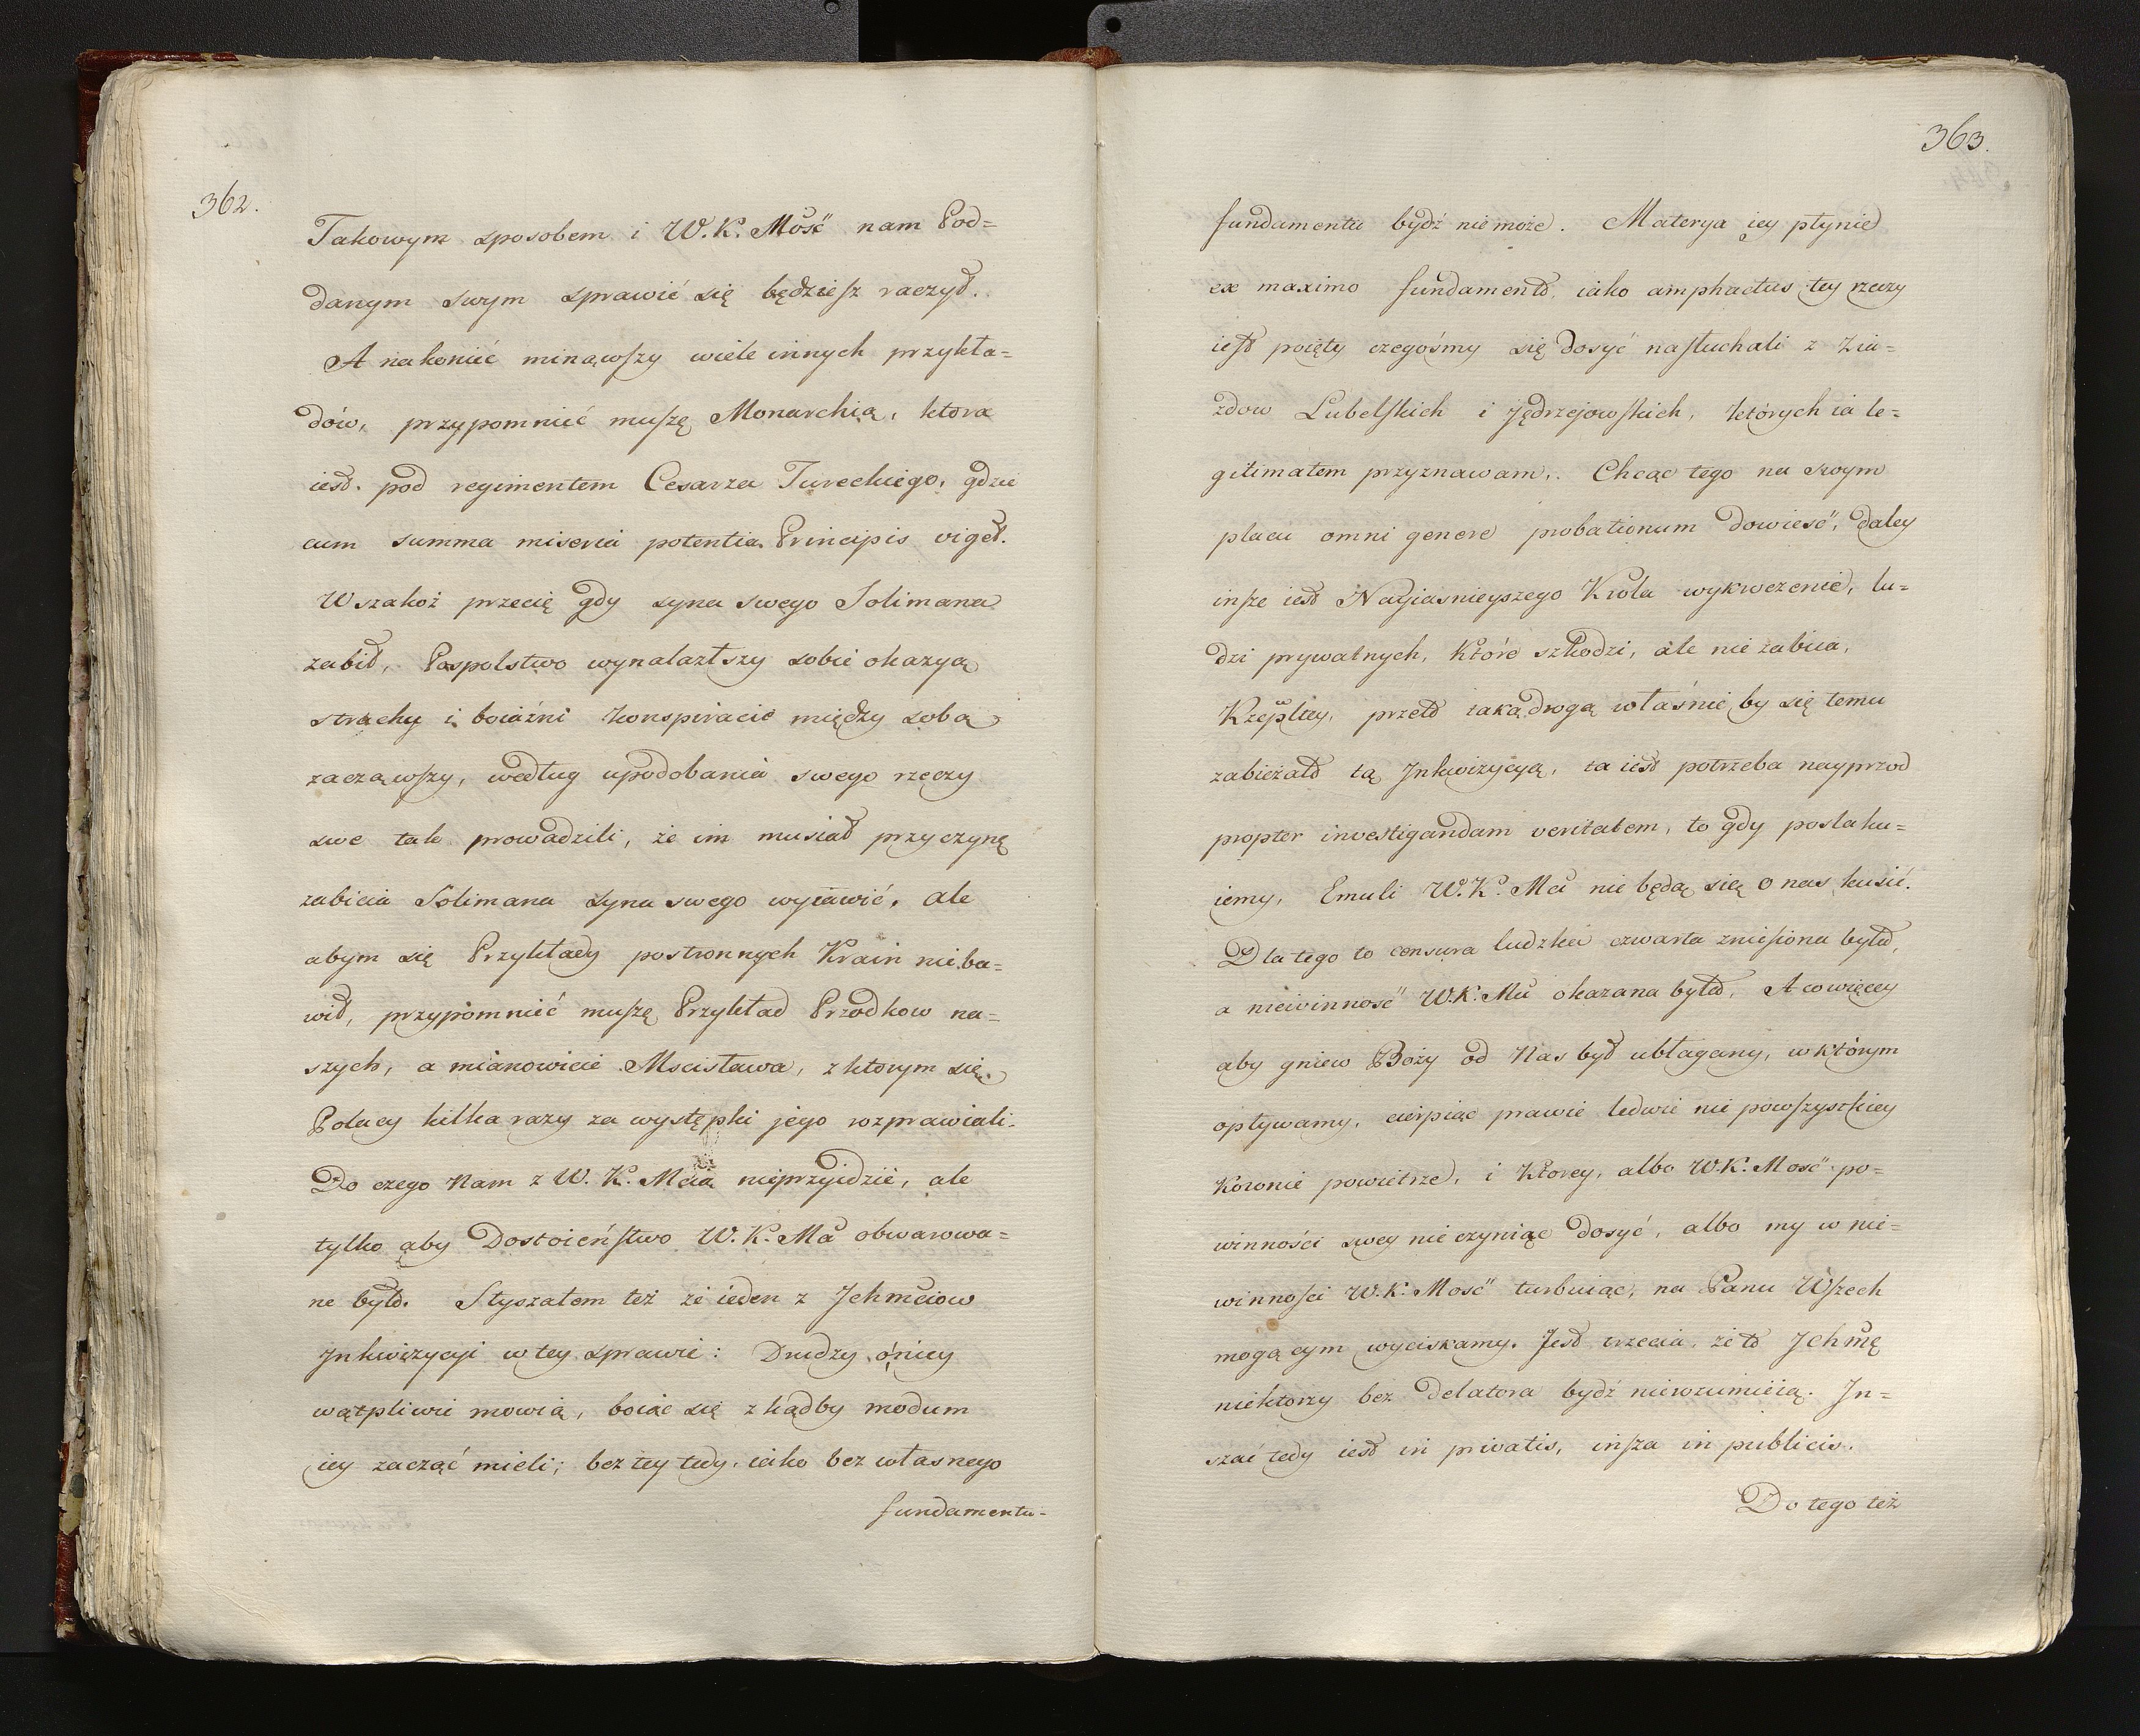 362.
Takowym sposobem i W. K. Mość nam Pod=
danym swym sprawić się będziesz raczył.
A nakoniec minąwszy wiele innych przykła=
dów, przypomnieć muszę Monarchią, ktora
iest pod regimentem Cesarza Tureckiego, gdzie
cum summa miseria potentia Principis viget.
Wszakoż przecię gdy syna swego Solimana
zabił, Pospolstwo wynalazłszy sobie okazyą
strachy i boiaźni konspiracie między sobą
zacząwszy, według upodobania swego rzeczy
swe tak prowadzili, że im musiał przyczynę
zabicia Solimana syna swego wyiawić, ale
abym się Przykłady postronnych Krain nie ba=
wił, przypomnieć muszę Przykład Przodkow na=
szych, a mianowicie Mscisława, z ktorym się
Polacy kilka razy za występki jego rozprawiali.
Do czego Nam z W. K. Mcią nieprzyidzie, ale
tylko aby Dostoieństwo W. K. Mci obwarowa=
ne było. Słyszałem też że ieden z Ichmciow
Inkwizycyi w tey sprawie: Drudzy o niey
wątpliwie mowią, boiąc się zkądby modum
iey zacząć mieli; bez tey tedy, iako bez własnego
fundamentu-
363.
fundamentu bydź nie może. Materya iey płynie
ex maximo fundamento, iako amphactus tey rzeczy
iest poięty czegośmy się dosyć nasłuchali z Zia=
zdow Lubelskich i Jędrzejowskich, których ia le=
gitimatem przyznawam. Chcąc tego na swym
placu omni genere probationum dowiesć, daley
insze iest Nayiasnieyszego Krola wykroczenie, lu=
dzi prywatnych, Które szkodzi, ale nie zabiia,
Rzepltey, przeto iaką drogą właśnie by się temu
zabieżało tą Inkwizycyą, ta iest potrzeba nayprzod
propter investigandam veritatem, to gdy poslaku=
iemy, Emuli W. K. Mci nie będą się o nas kusić.
Dla tego to censura ludzka czwarta zniesiona było,
a niewinnosć W. K. Mci okazana było, A co więcey
aby gniew Boży od Nas był ubłagany, w którym
opływamy, cierpiąc prawie ledwie nie powszystkiey
Koronie powietrze, i Ktorey, albo W. K. Mosć po=
winności swey nie czyniąc dosyć, albo my w nie=
winnosci W. K. Mosć turbuiąc, na Panu Wszech
mogącym wyciskamy. Jest trzecia, że to Ichmę
niektorzy bez delatora bydź nierozumieią. In=
szać tedy iest in privatis, insza in publicis.
Do tego też